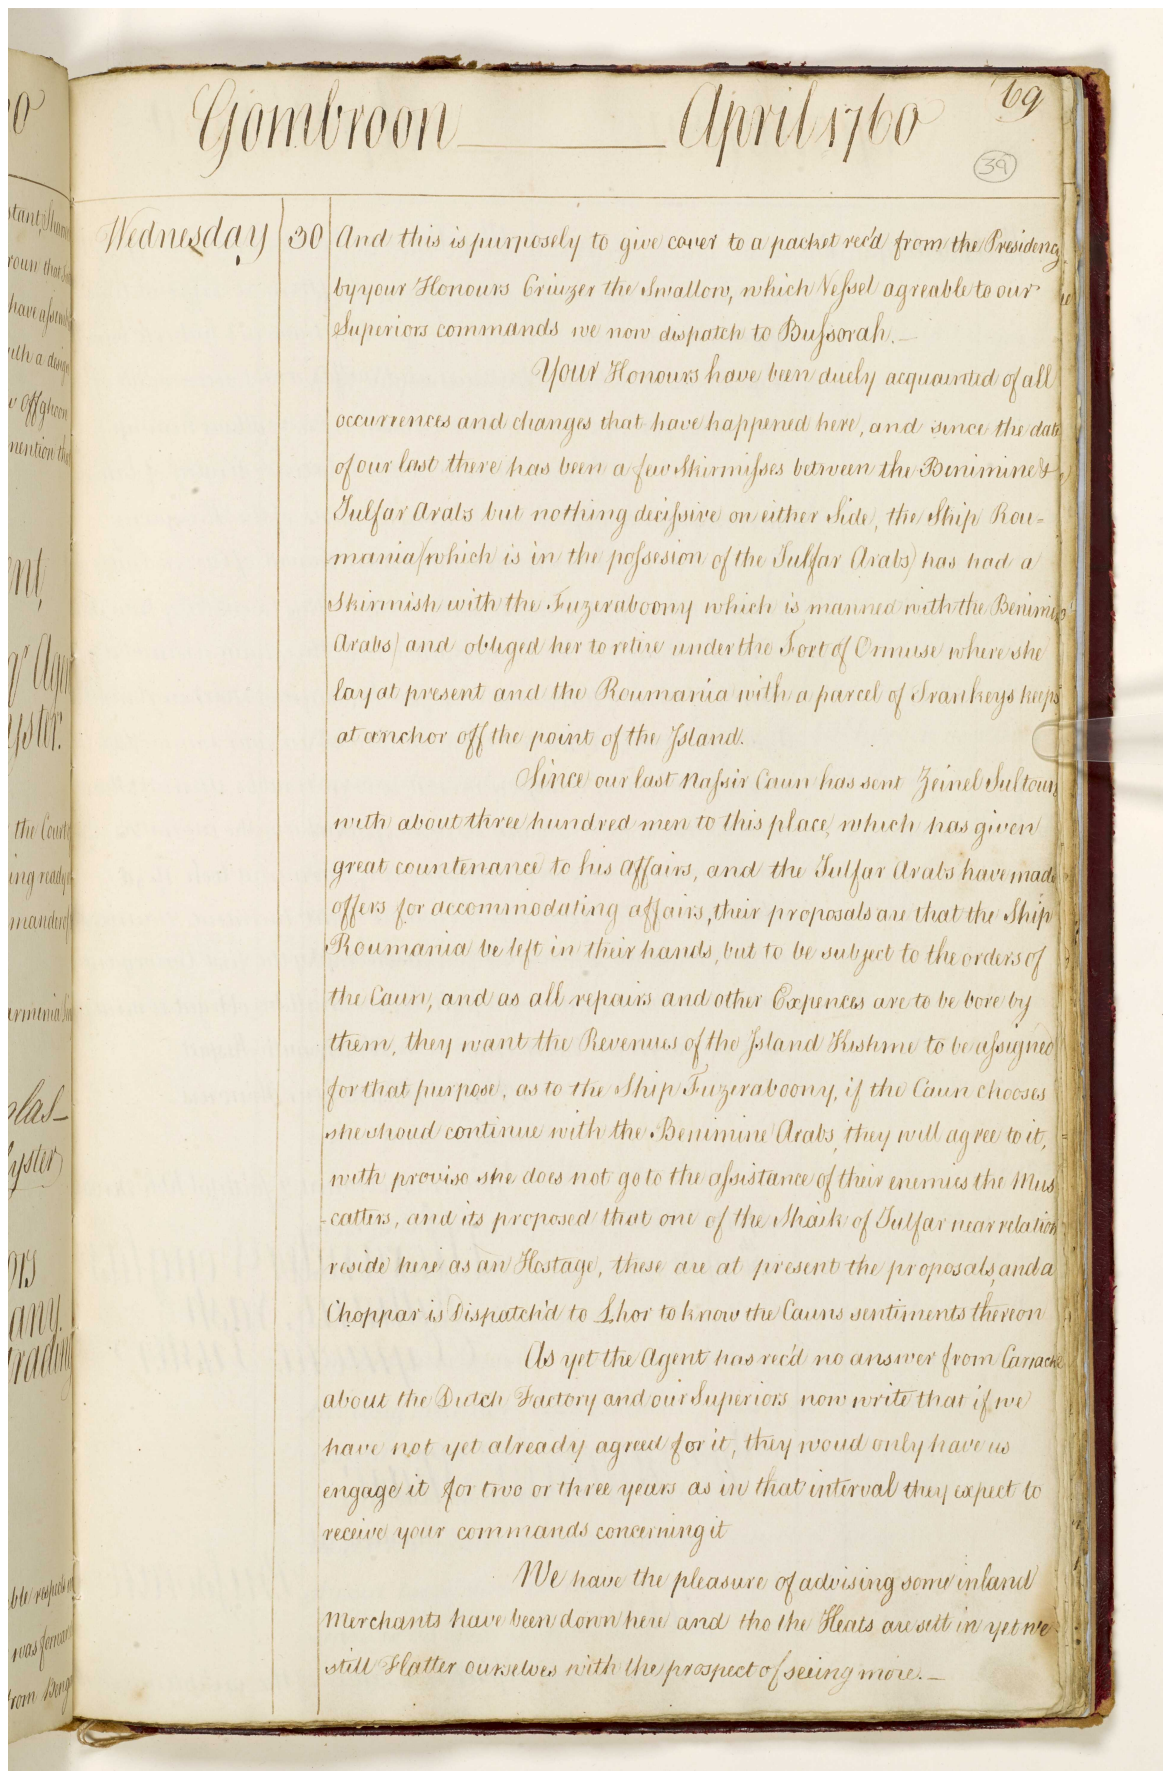 Gombroon April 1760
69
39
Wednesday 30 And this is purposely to give cover to a packet rec'd from the Presidency
by your Honours Criuzer the Swallow, which Vessel agreable to our
Superiors commands we now dispatch to Bussorah.—
Your Honours have been duely acquainted of all
occurrences and changes that have happened here, and since the date
of our last there has been a few Skirmisses between the Benimine &
Julfar Arabs but nothing decissive on either Side, the Ship Rou=
mania (which is in the possesion of the Julfar Arabs) has had a
Skirmish with the Fuzeraboony which is manned with the Benimine
Arabs) and obliged her to retire under the Fort of Ormuse where she
lay at present and the Roumania with a parcel of Trankeys keeps
at anchor off the point of the Island.
Since our last Nassir Caun has sent Zeinel Sultoun
with about three hundred men to this place, which has given
great countenance to his affairs, and the Julfar Arabs have made
offers for accommodating affairs, their proposals are that the Ship
Roumania be left in their hands, but to be subject to the orders of
the Caun, and as all repairs and other Expences are to be bore by
them, they want the Revenues of the Island Kishme to be assigned
for that purpose, as to the Ship Fuzeraboony, if the Caun chooses
she shoud continue with the Benimine Arabs, they will agree to it,
with proviso she does not go to the assistance of their enemies the Mus
-catters, and its proposed that one of the Shaik of Julfar near relation
reside here as an Hostage, these are at present the proposals, and a
Choppar is Dispatch'd to Lhor to know the Cauns sentiments thereon
As yet the Agent has rec'd no answer from Carrack
about the Dutch Factory and our Superiors now write that if we
have not yet already agreed for it, they woud only have us
engage it for two or three years as in that interval they expect to
receive your commands concerning it
We have the pleasure of advising some inland
Merchants have been down here and tho the Heats are sett in yet we
still Flatter ourselves with the prospect of seeing more.—